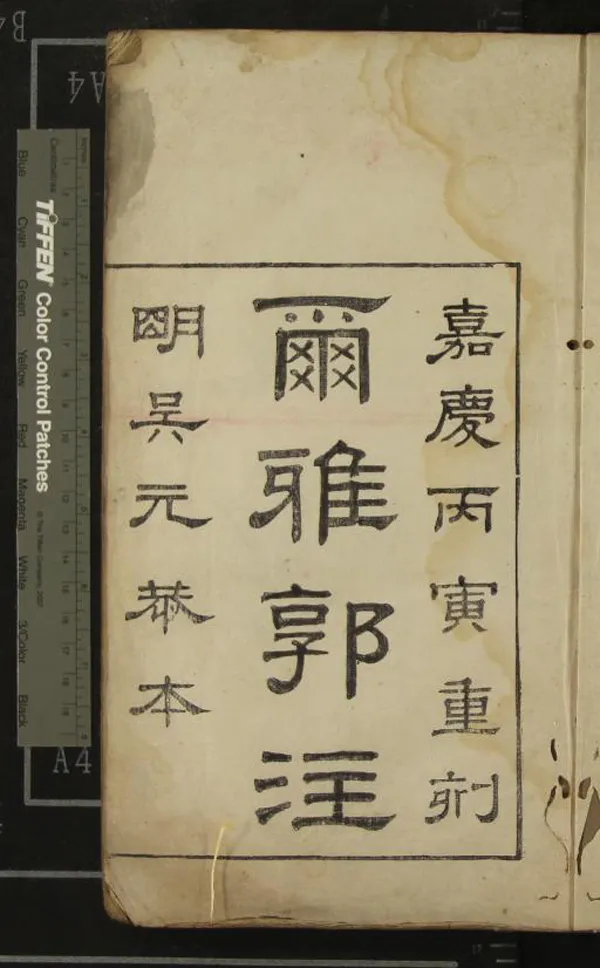 嘉慶丙寅重刻
爾雅郭注
明吳元恭本
TIFFEN Color Control Patches
Blue Cyan Green Yellow Red Magenta White 3/Color Black
Centimetres
Inches
© The Tiffen Company, 2007
A4
A4
B